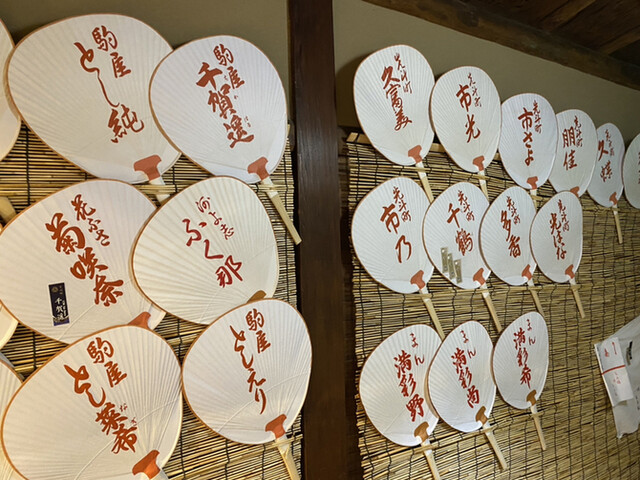 駒屋
とし純
駒屋
千賀遥
花ふさ
菊咲奈
千賀遥
河よ志
ふく那
駒屋
とし菜希
駒屋
としえり
先斗町
久富美
先斗町
市光
先斗町
市さよ
先斗町
朋佳
先斗町
先斗町
市乃
先斗町
千鶴
先斗町
多香
先斗町
光はな
まん
満彩野
まん
満彩尚
まん
満彩希